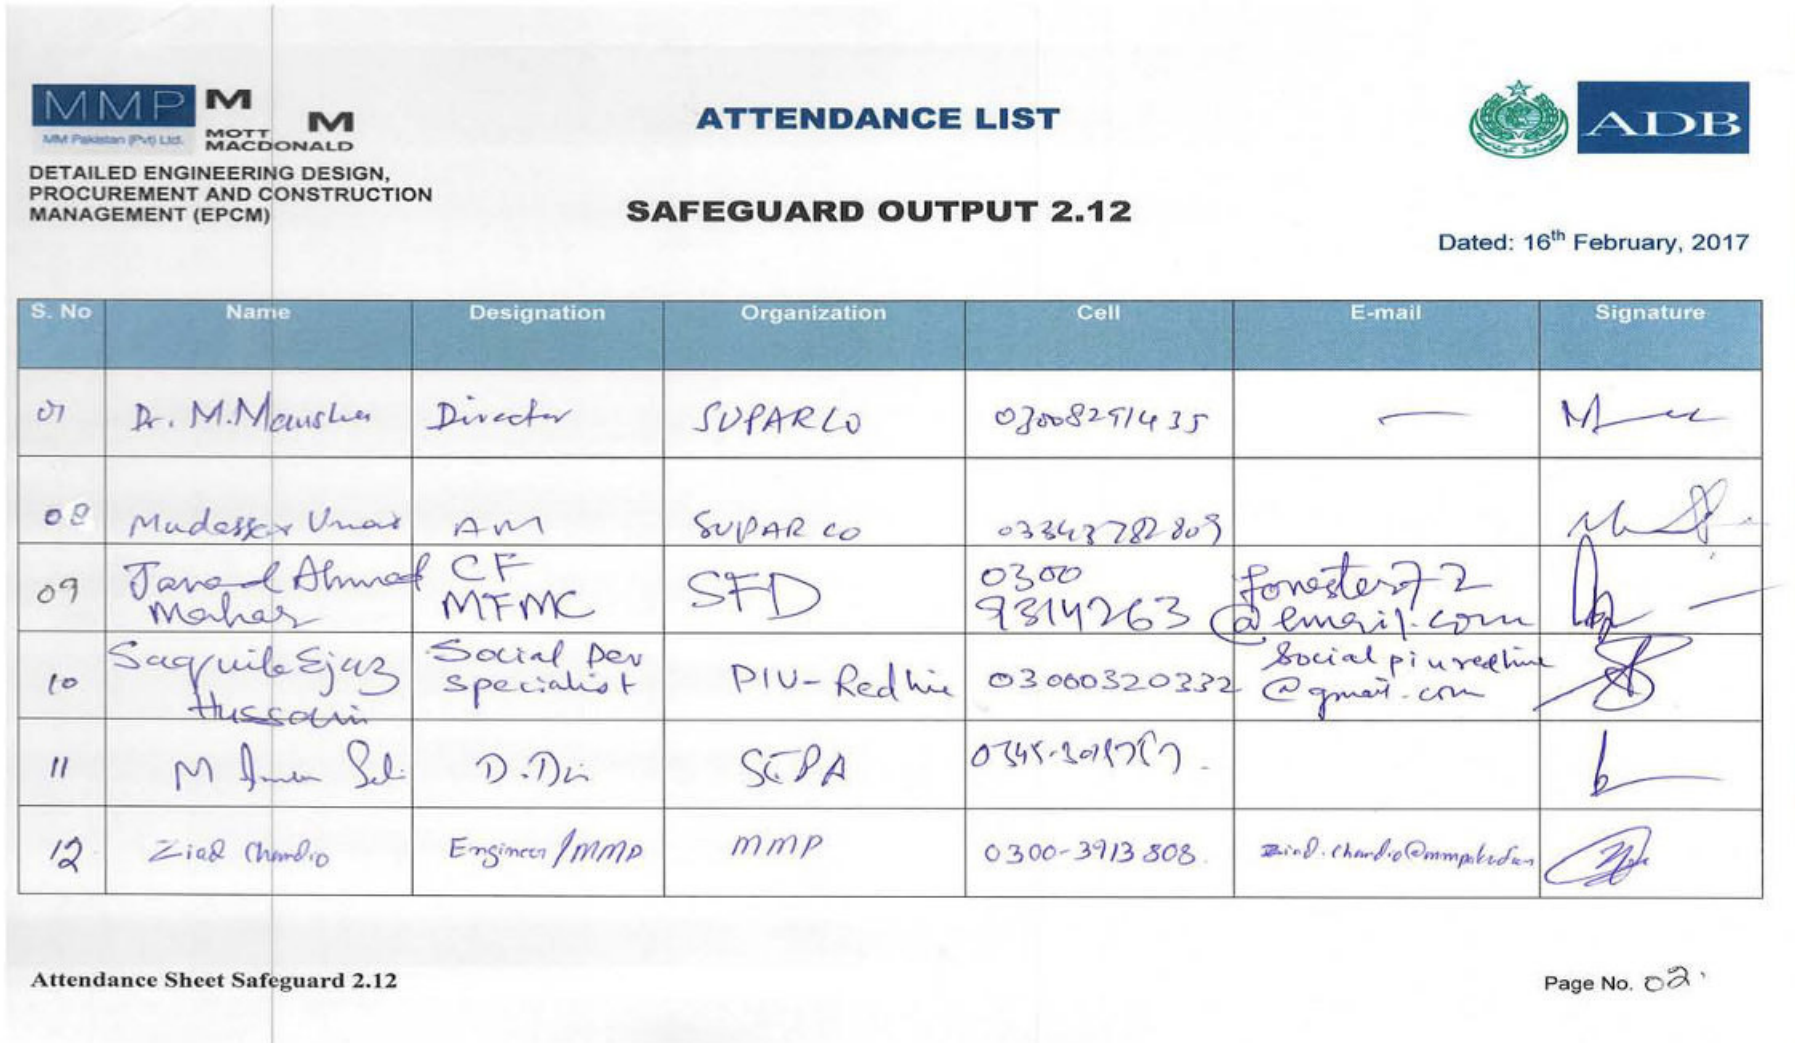 MMP
MM Pakistan (Pvt) Ltd.
M
M
MOTT
MACDONALD
ATTENDANCE LIST
ADB
DETAILED ENGINEERING DESIGN,
PROCUREMENT AND CONSTRUCTION
MANAGEMENT (EPCM)
SAFEGUARD OUTPUT 2.12
Dated: 16th February, 2017
S. No Name Designation Organization Cell E-mail Signature
Dr. M. Director SUPARCO 03008291435 —
08 Mudasser Umar AM SUPARCO 03343782809
09 Javed Ahmad Mahar CF MFMC SFD 0300 9314263 forester72 @email.com
10 Saquib Ejaz Hussain Social Dev Specialist PIU-Redline 03000320332 Socialpiuredline @gmail.com
11 M D.Dir SEPA
12 Ziad Chandio Engineer/MMP MMP 0300-3913808
Attendance Sheet Safeguard 2.12
Page No. 02.